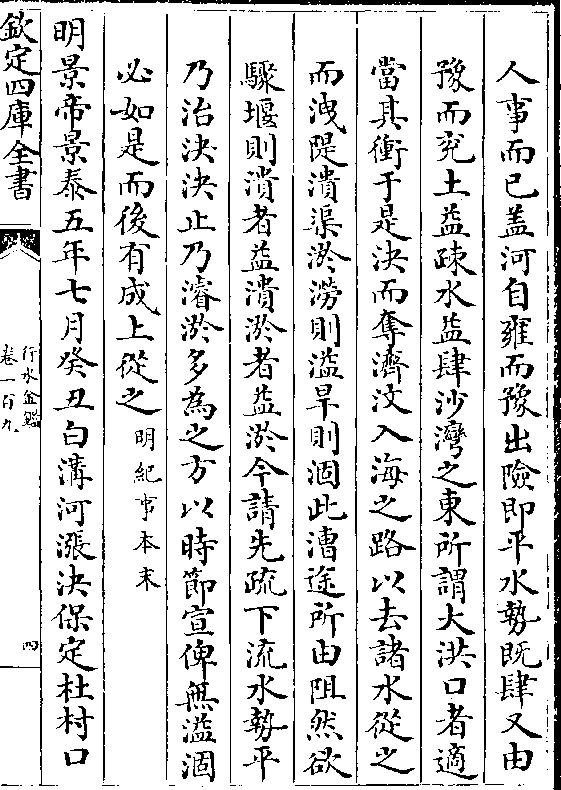 人事而已盖河自雍而豫出險即平水勢既肆又由
豫而兖土益疎水益肆沙灣之東所謂大洪口者適
當其衝于是決而奪濟汶入海之路以去諸水從之
而洩隄潰渠淤澇則溢旱則涸此漕途所由阻然欲
驟堰則潰者益潰淤者益淤今請先疏下流水勢平
乃治決決止乃濬淤多為之方以時節宣俾無溢涸
必如是而後有成上從之明紀事本末
明景帝景泰五年七月癸丑白溝河漲決保定杜村口
欽定四庫全書
行水金鑑
卷一百九
四